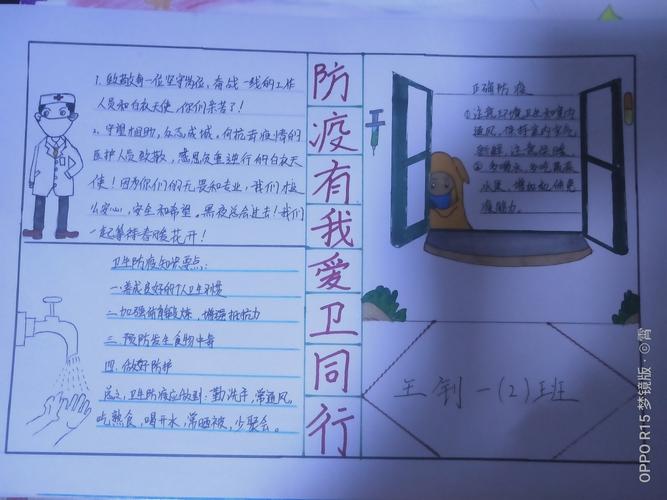 1. 致敬每一位坚守岗位,奋战一线的工作
人员和白衣天使,你们辛苦了!
2. 守望相助,众志成城,向抗击疫情的
医护人员致敬,感恩负重逆行的白衣天
使!因为你们的无畏和专业,我们才放
心安心,安全和希望。黑夜总会过去!我们
一起等待春暖花开!
卫生防疫知识要点:
一.养成良好的个人卫生习惯
二.加强体育锻炼,增强抵抗力
三.预防发生食物中毒
四.做好防护
总之,卫生防疫应做到:勤洗手,常通风,
吃熟食,喝开水,常晒被,少聚会。
防
疫
有
我
爱
卫
同
行
正确防疫
①注意环境卫生和室内
通风,保持室内空气
新鲜,注意保暖
②多喝水,多吃蔬菜
水果,增加机体免
疫能力。
王钊一(2)班
OPPO R15 梦镜版·©霄